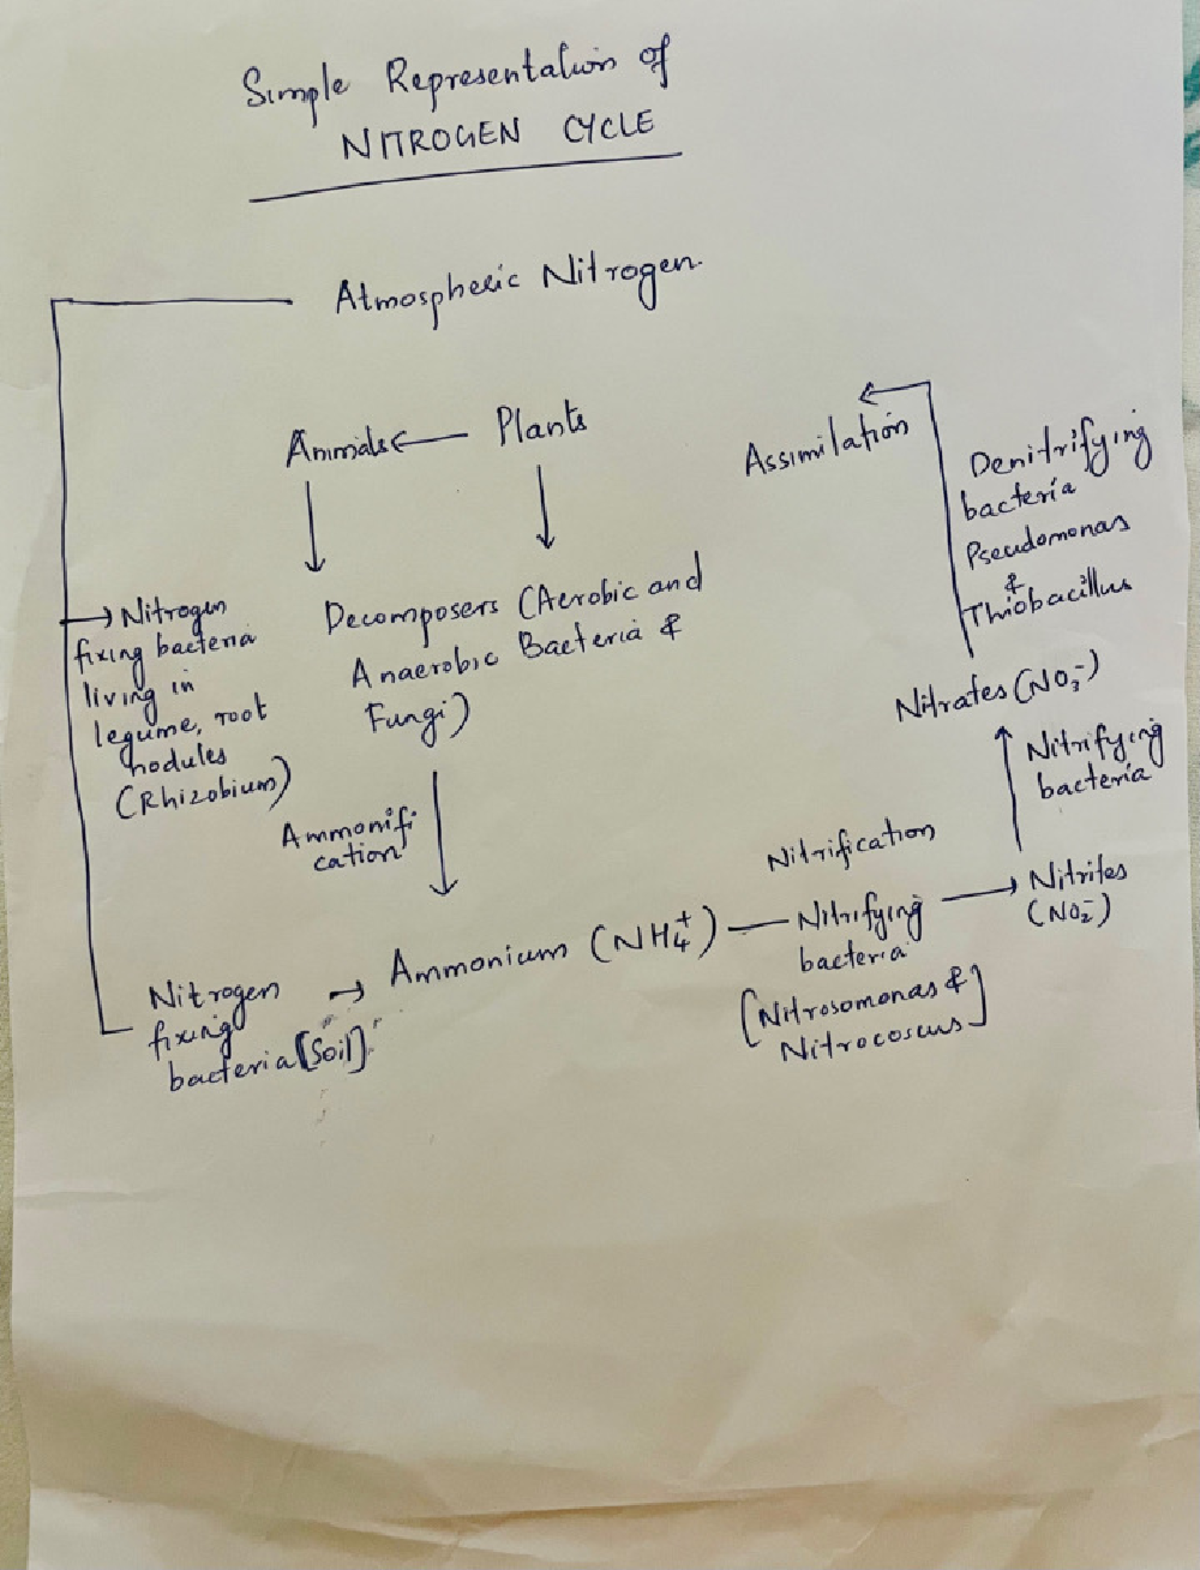 Simple Representation of
NITROGEN CYCLE
Atmospheric Nitrogen.
Animals Plants
Assimilation
Denitrifying
bacteria
Pseudomonas
&
Thiobacillus
Nitrogen
fixing bacteria
living in
legume, root
nodules
(Rhizobium)
Decomposers (Aerobic and
Anaerobic Bacteria &
Fungi)
Nitrates (NO3-)
Nitrifying
bacteria
Ammonifi
cation
Nitrification
Ammonium (NH4+)
Nitrifying
bacteria
[Nitrosomonas &
Nitrocoscus]
Nitrites
(NO2-)
Nitrogen
fixing
bacteria [Soil]